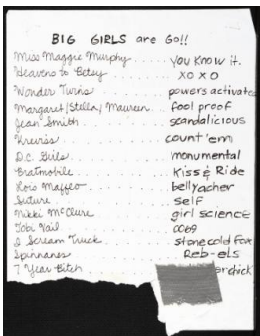 BIG GIRLS are Go!!
Miss Maggie Murphy . . . . you know it.
Heavens to Betsy . . . . XOXO
Wonder Twins . . . . powers activate
Margaret/Stella/Maureen . . fool proof
Jean Smith . . . . scandalicious
Kreviss . . . . count 'em
D.C. Girls . . . . monumental
Bratmobile . . . . Kiss & Ride
Lois Maffeo . . . . bellyacher
Suture . . . . self
Nikki McClure . . . . girl science
Tobi Vail . . . .
I Scream Truck . . . . stone cold fox
Spinnanes . . . . Reb-els
7 Year Bitch . . . . chick